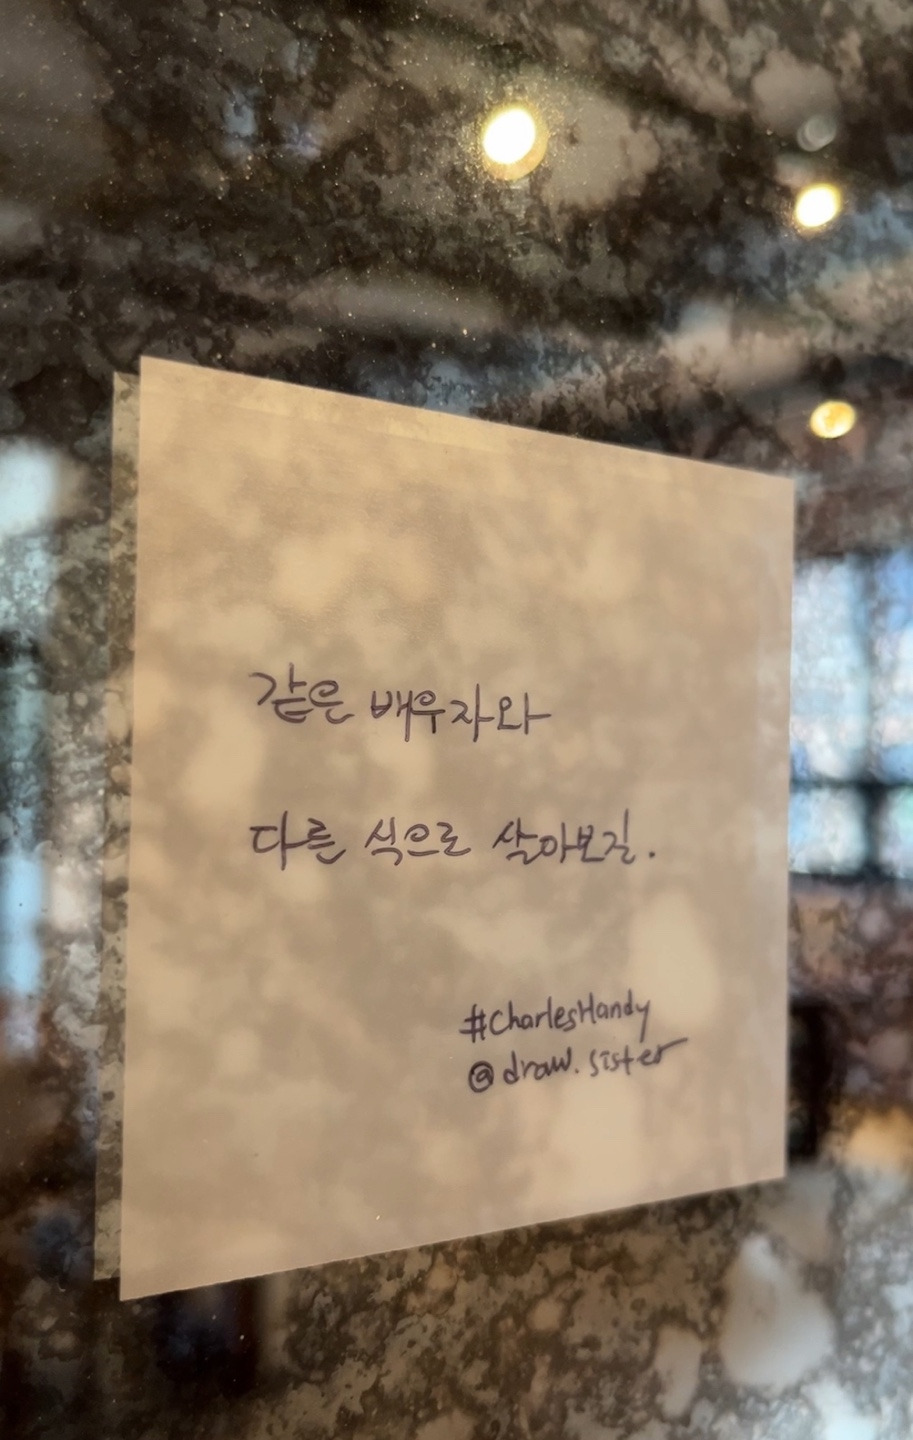 같은 배우자와
다른 식으로 살아보길.
#CharlesHandy
@draw.sister